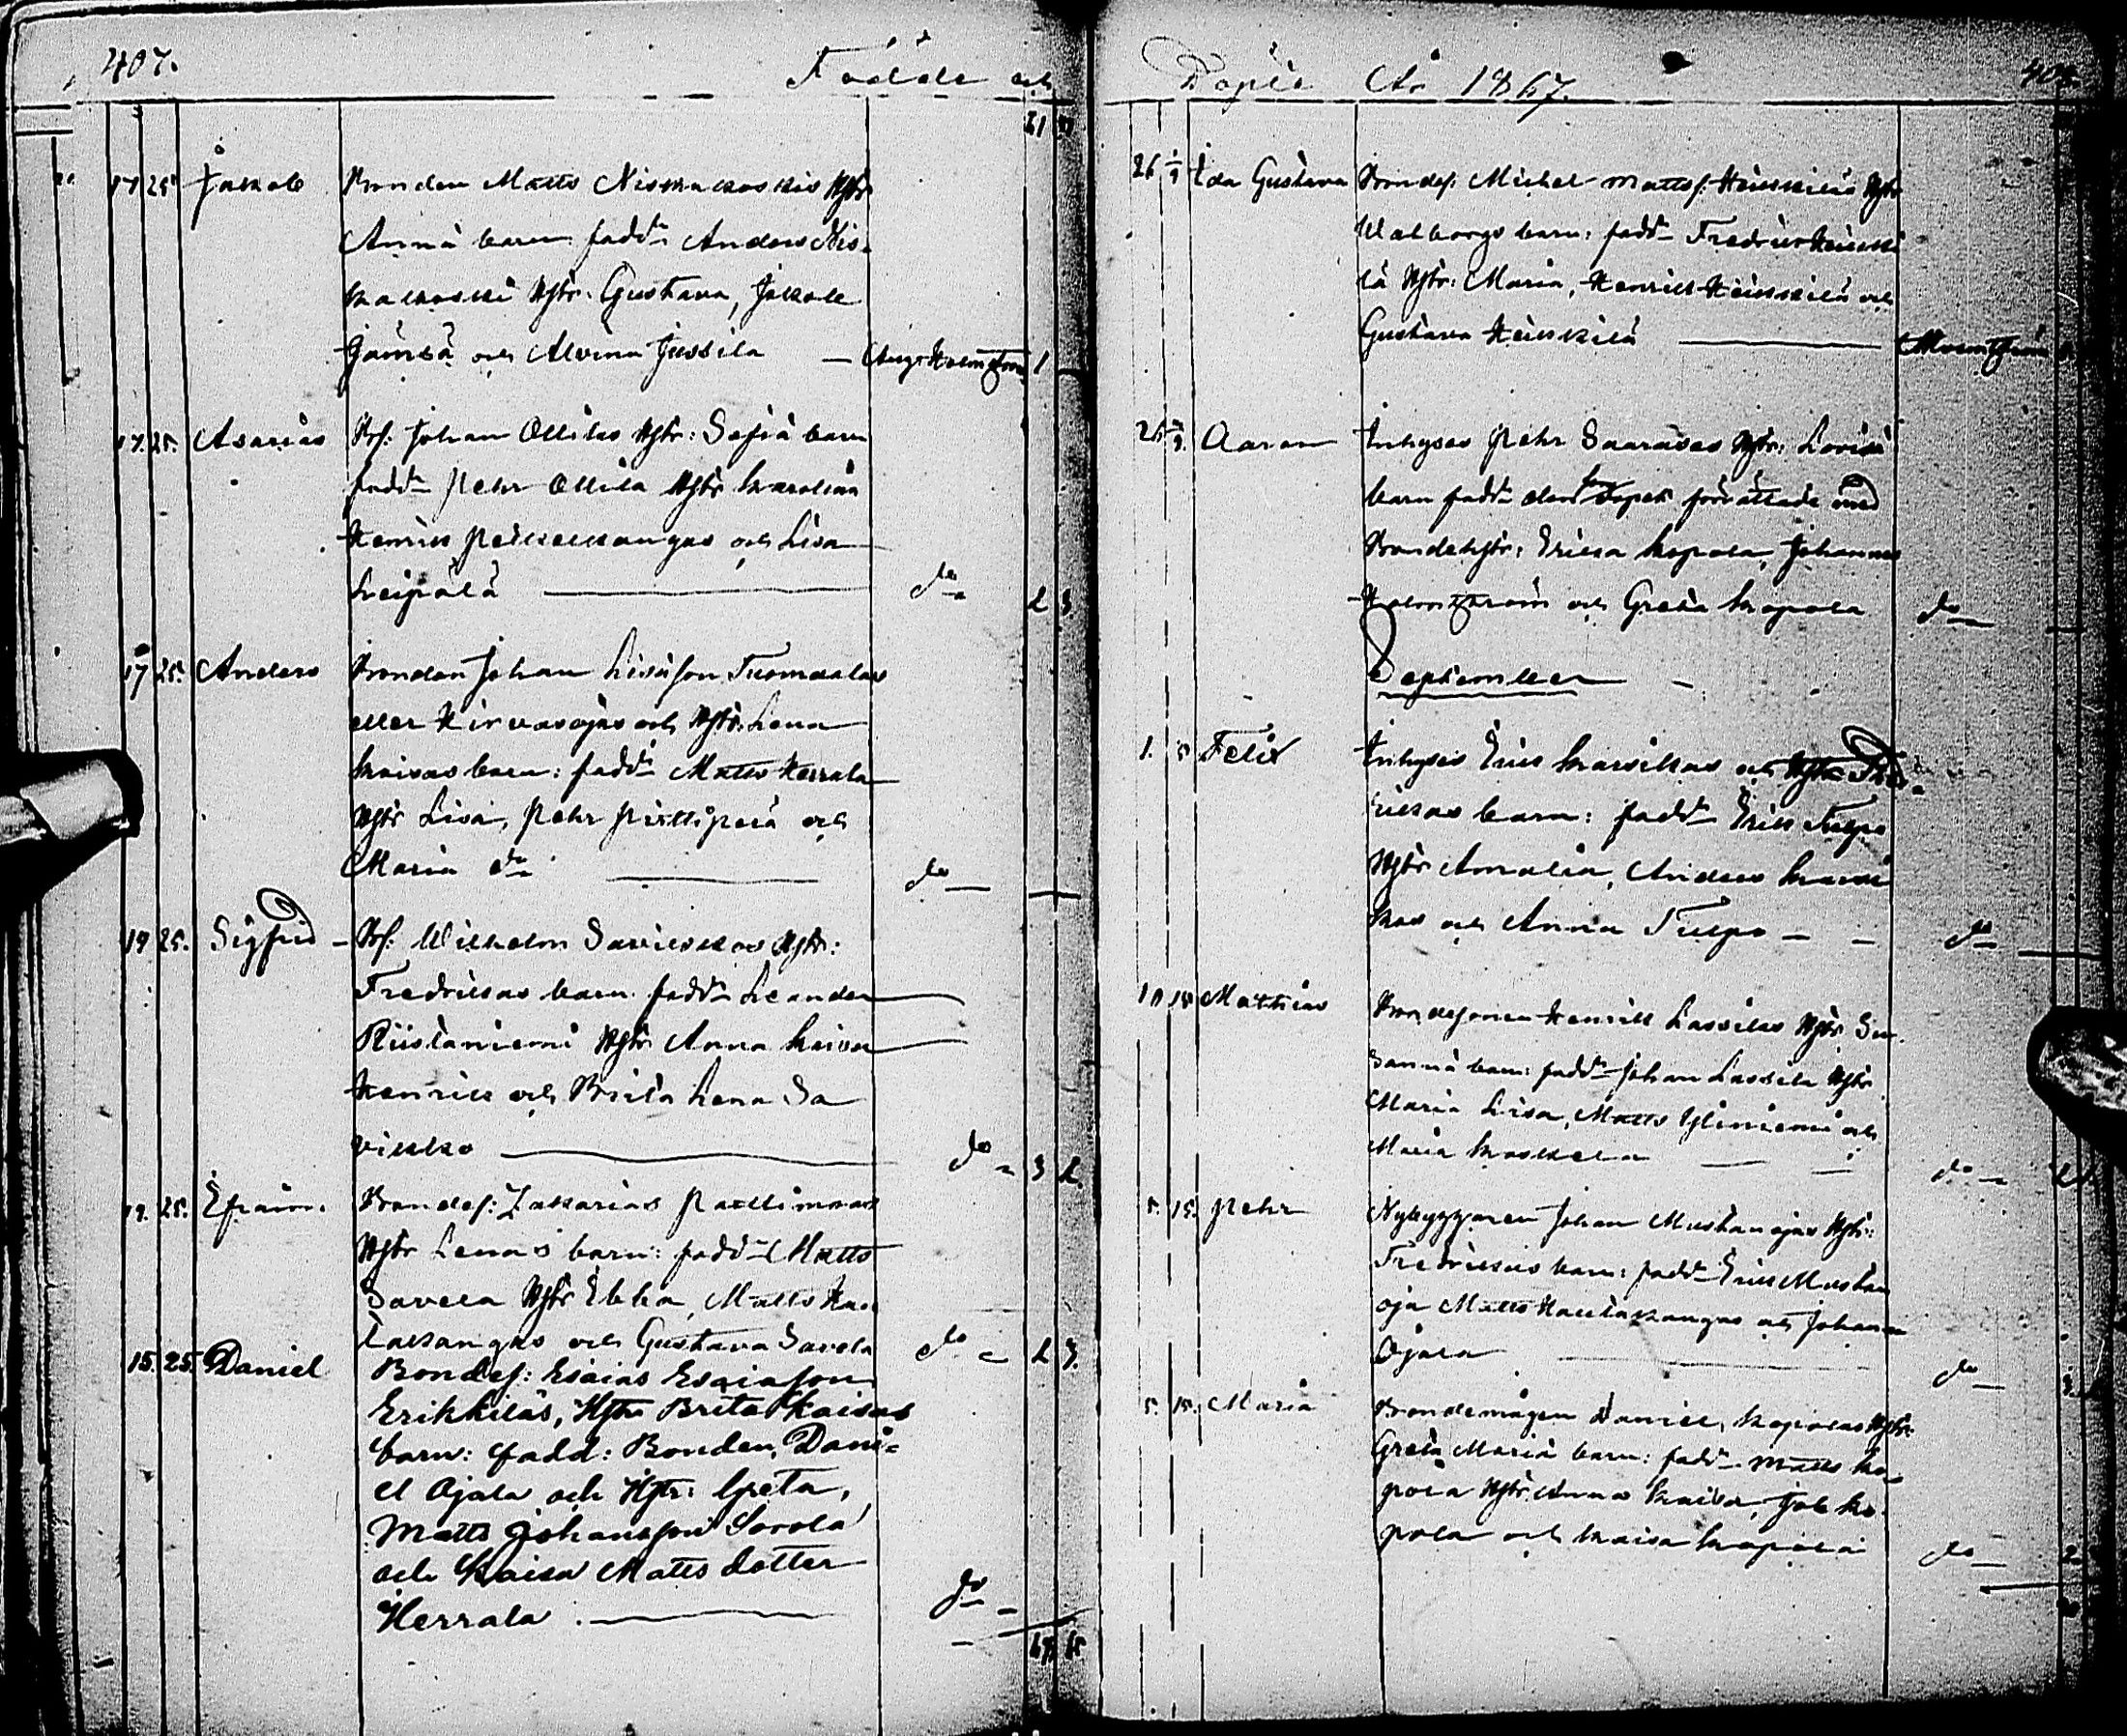 407.
Födde och
17 25 Jakob Bonden Matts Niskakoskis Hstr
Anna barn: fadd: Anders Nis-
kakoski Hstr: Gustava, Jakob
Jämsä och Alvina Jussila — Aug: Holmström 1
17. 25. Asarias Bs: Johan Ollilas Hstr: Sofia barn
fadd: Pehr Ollila Hstr Karolina
Henrik och Lisa
Leipälä do 2 3
17 25. Anders Bonden Johan Tuomaalas
eller Hirvasojas och Hstr: Lena
Kaisas barn: fadd: Matts Herrala
Hstr Lisa, Pehr Pirttiperä och
Maria do do
19 25. Sigfrid Bs: Wilhelm Saviokkos Hstr:
Fredrikas barn fadd: Leander
Riistaniemi Hstr Anna Kaisa
Henrik och Brita Lena Sa
do 3 2.
19. 25. Efraim. Bondes: Zakarias
Hstr Lenas barn: fadd: Matts
Savela Hstr Ebba, Matts Hau
takangas och Gustava Savela do 2 3.
15. 25 Daniel Bondes: Esaias Esaiasson
Erikkiläs, Hstr Brita Kaisas
barn: fadd: Bonden Dani=
el Ojala och Hstr: Greta,
Matts Johansson Sorola
och Kaisa Matts dotter
Herrala. do
Döpte År 1867.
26 1/9 Ida Gustava Bondes: Michel Mattss: Heikkiläs Hstr
Walborgs barn: fadd: Fredrik Heikki
lä Hstr: Maria, Henrik Heikkilä och
Gustava Heikkilä Holmström
Aaron Inhyses Pehr Saarasas Hstr: Lovisa
barn fadd: den döpet förrättade
Bondehstr: Erika Kopola, Johannes
Holmström och Greta Kopola do
September
1. 8 Felix Inhyses Eriks Karsikkas och Hstr
Erikas barn: fadd: Erik Tulpo
Hstr Amalia, Anders Karsi
kas och Anna Tulpo do
10 Mathias Bondesonen Henrik Lassilas Hstr Su-
sanna barn: fadd: Johan Lassila Hstr
Maria Lisa, Matts Yliniemi och
Maria Koskela do
5. 15. Pehr Nybyggaren Johan Mustanojas Hstr:
Fredrikas barn: fadd: Erik Mustan
oja Matts Hautakangas och Johanna
Ojala do
5. 15. Maria Bondemågen Daniel Kopolas Hstr
Greta Maria barn: fadd: Matts Ko-
pola Hstr Anna Kaisa, Job Ko-
pola och Kaisa Kopola do